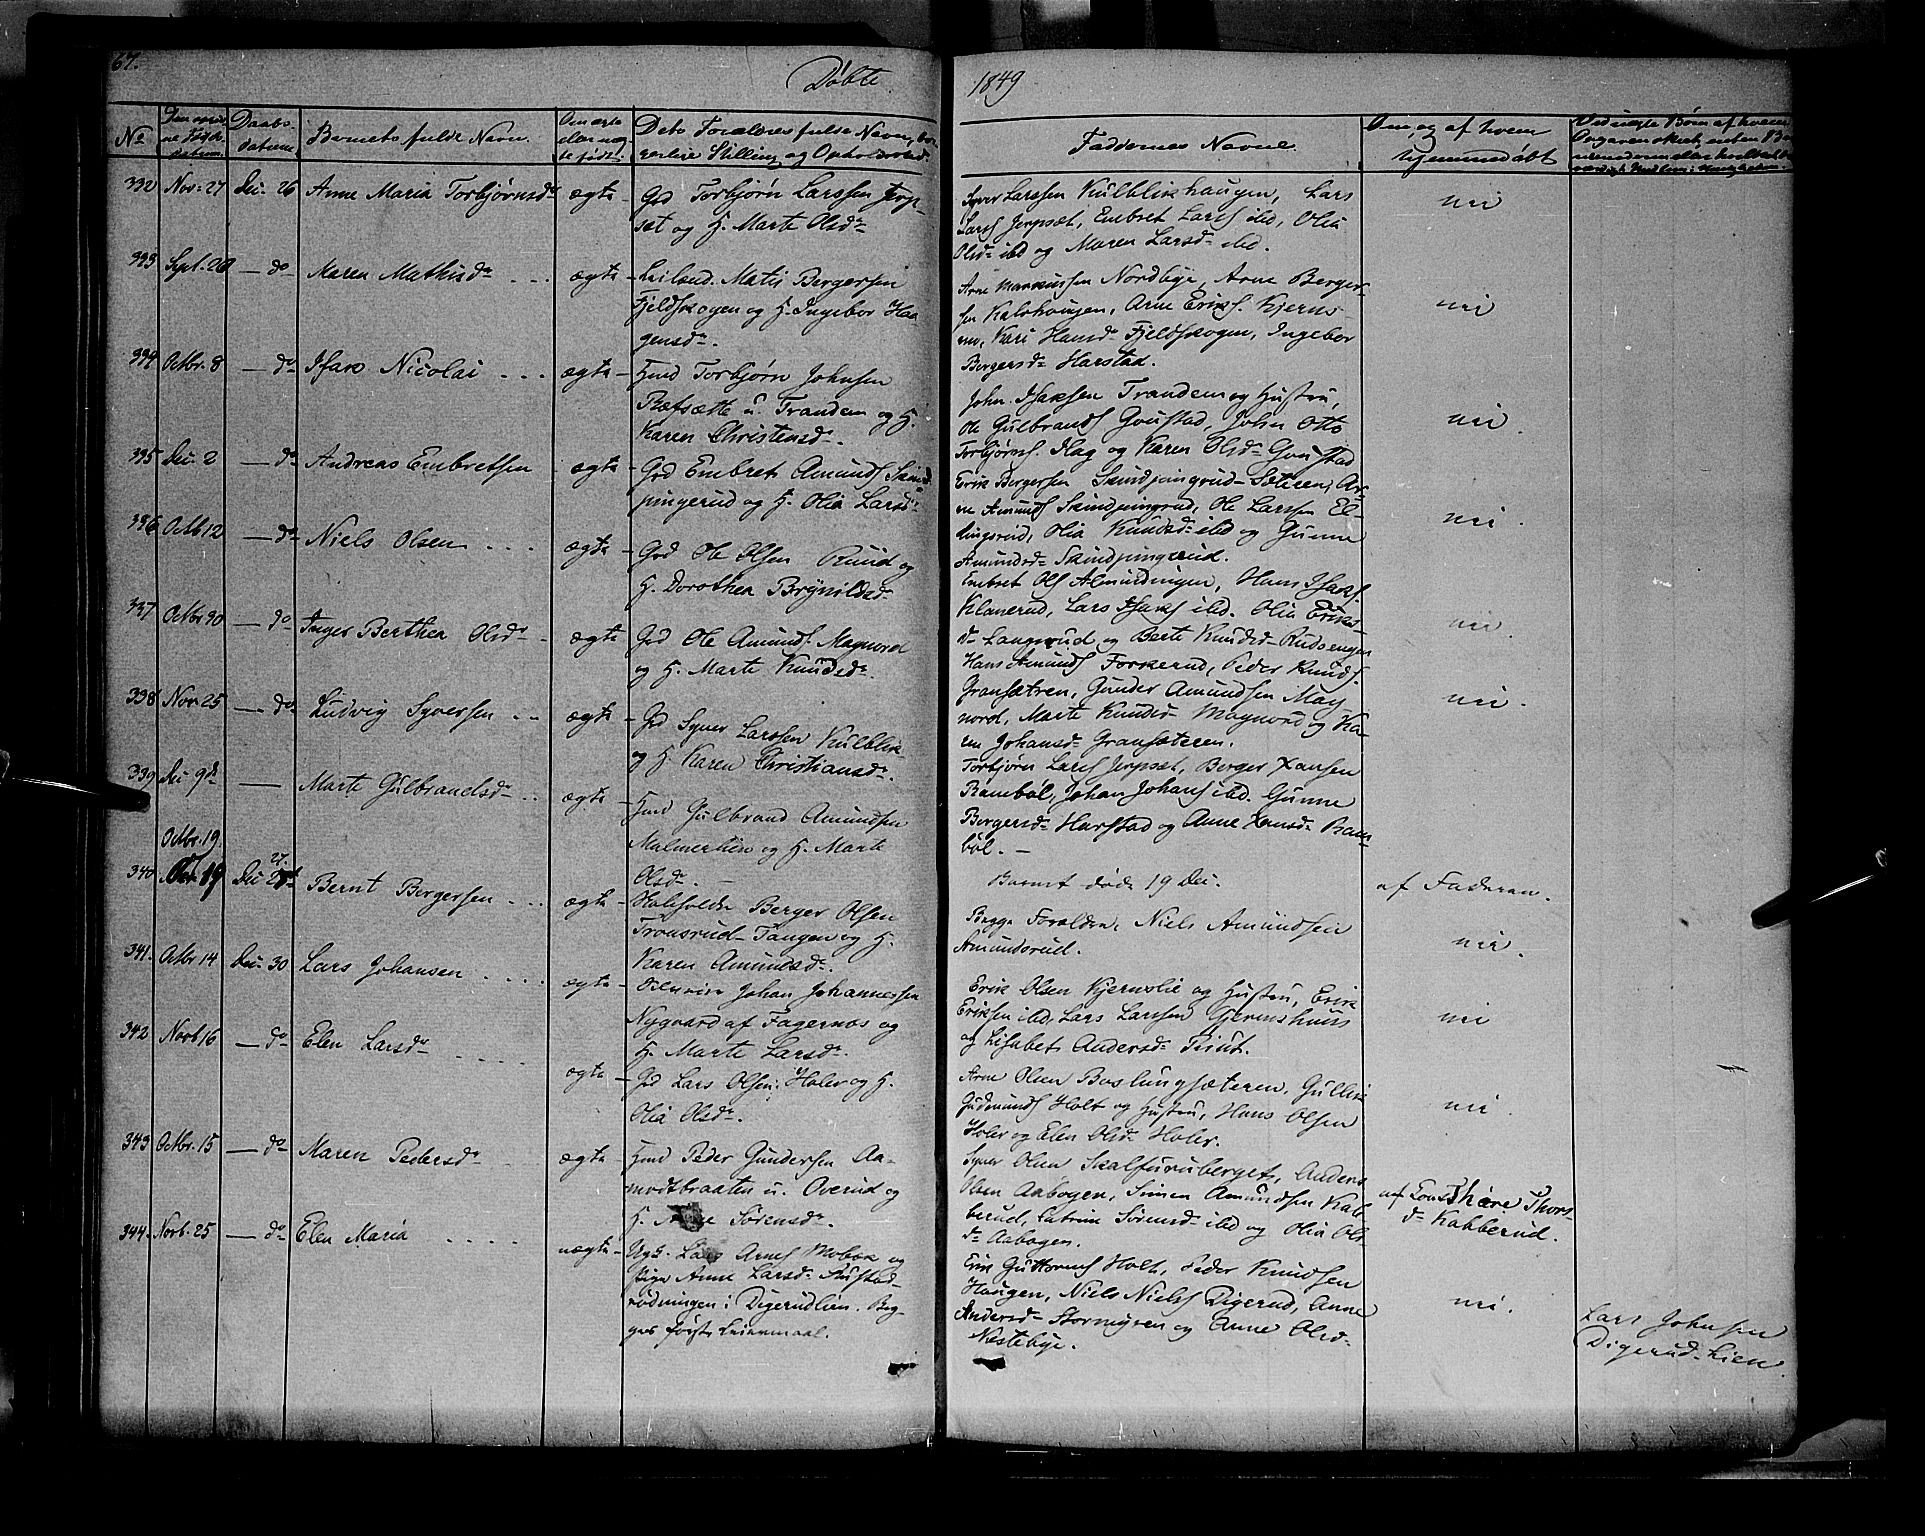 67.
Döbte
1849
No
Daabs-
datum
Barnets fulde Navn.
Dets Forældres fulde Navn, bor-
gerlige Stilling og Opholdssted
Faddernes Navne.
Om, og af hvem
hjemmedøbt
332 Nov. 27 Dec. 26 Anne Maria Torbjørnsdr ægte
Grd Torbjørn Larssen Jerp-
set og H. Marte Olsdr
Syver Larssen Kulblikhaugen, Lars
Larss Jerpset, Embret Larss ibd, Olia
Olsdr ibd og Maren Larsdr ibd.
nei
333 Sept. 20 — do Karen Mathisdr ægte
Leiland. Matis Bergersen
Fjeldskogen og H. Ingebor Haa
gensdr.
Arne Nordbye, Arne Berger-
sen Kalshaugen, Arne Eriks. Kjerns-
mo, Kari Hansdr Fjeldskogen, Ingebor
Bergersdr Harstad.
nei
334 Octbr. 8 — do Isak Nicolai ægte
Hmd Torbjørn Johnsen
Ræfsætte u. Trandem og H.
Karen Christensdr.
John Isaksen Trandem og Hustru,
Ole Gulbrands Goustad, John Otto
Torbjørns. Hag og Karen Olsdr Goustad
nei
335 Dec. 2 — do Andreas Embretsen ægte
Grd Embret Amunds Skind-
pungerud og H. Olia Larsdr
Erik Bergersen Skindpungrud-Sæteren, Ar-
ne Amunds Skindpungrud, Ole Larssen El-
lingsrud, Olia Knudsdr ibd og Gunne
Amundsdr Skindpungrud.
nei
336 Octb 12 — do Niels Olsen ægte
Grd Ole Olsen Ruud og
H. Dorothea Brynildsdr
Embret Ols Almindingen, Hans Isaks.
Klanerud, Lars Isaks ibd. Olia Eriks-
dr Langerud og Berte Knudsdr Rudsengen
nei
337 Octbr 30 — do Inger Berthea Olsdr ægte
Grd Ole Amunds. Magnord
og H. Marte Knudsdr.
Hans Amunds Forkerud, Peder Knuds.
Gransætren, Gunder Amundsen Mag-
nord, Marte Knudsdr Magnord og Ka-
ren Johansdr Gransæteren.
nei.
338 Nov. 25 — do Ludvig Syversen ægte
Grd Syver Larssen Kulblik
og H Karen Christiansdr.
Torbjørn Larss Jerpset, Berger Hansen
Rambøl, Johan Johans ibd. Gunne
Bergersdr Harstad og Anne Hansdr Ram-
bøl. —
339 Dec 9de — Marte Gulbrandsdr ægte
Hmd Gulbrand Amundsen
Malmerlien og H. Marte
Olsdr. —
Barnet døde 19 Dec.
af Faderen.
Octbr. 19.
340 27. Bernt Bergersen ægte
Huseholder Berger Olsen
Tronsrud-Tangen og H.
Karen Amundsdr.
Begge Forældre, Niels Amundsen
Amundsrud.
nei.
341. Octbr 14 Dec. 30 Lars Johansen ægte
Johan Johannessen
Nygaard af Fagernæs og
H. Marte Larsdr.
Erik Olsen Kjernslie og Hustru, Erik
Eriksen ibd, Lars Larssen Gjermshuus
og Lisabet Andersdr Priut.
nei
342 Novb 16 — do Elen Larsdr ægte
Grd Lars Olsen Holer og H.
Olia Olsdr.
Arne Olsen Baslungsæteren, Gullik
Gudmunds Holt og Hustru, Hans Olsen
Holer og Elen Olsdr Holer.
nei
343 Octbr. 15 — do Maren Pedersdr ægte
Hmd Peder Gundersen Aa-
modtbraaten u. Overud og
H. Sørensdr.
Syver Olsen Skalfuruberget, Anders
Olsen Aabogen, Simen Amundsen Kab
berud, Catrine Sørensdr ibd og Olia Ols-
dr Aabogen.
af Thore Thors-
dr Kabberud.
344. Novb. 25 — do Elen Maria uægte
Ugk. Lars Arnes Mobæk og
Pige Anne Larsdr
rødningen i Digerudlien. Beg-
ges første Leiermaal.
Erik Guttorms Holt, Peder Knudsen
Haugen, Niels Niels Digerud, Anne
Andersdr Stormyren og Anne Olsdr
Næstebye.
nei.
Lars Johnsen
Digerud-Lien